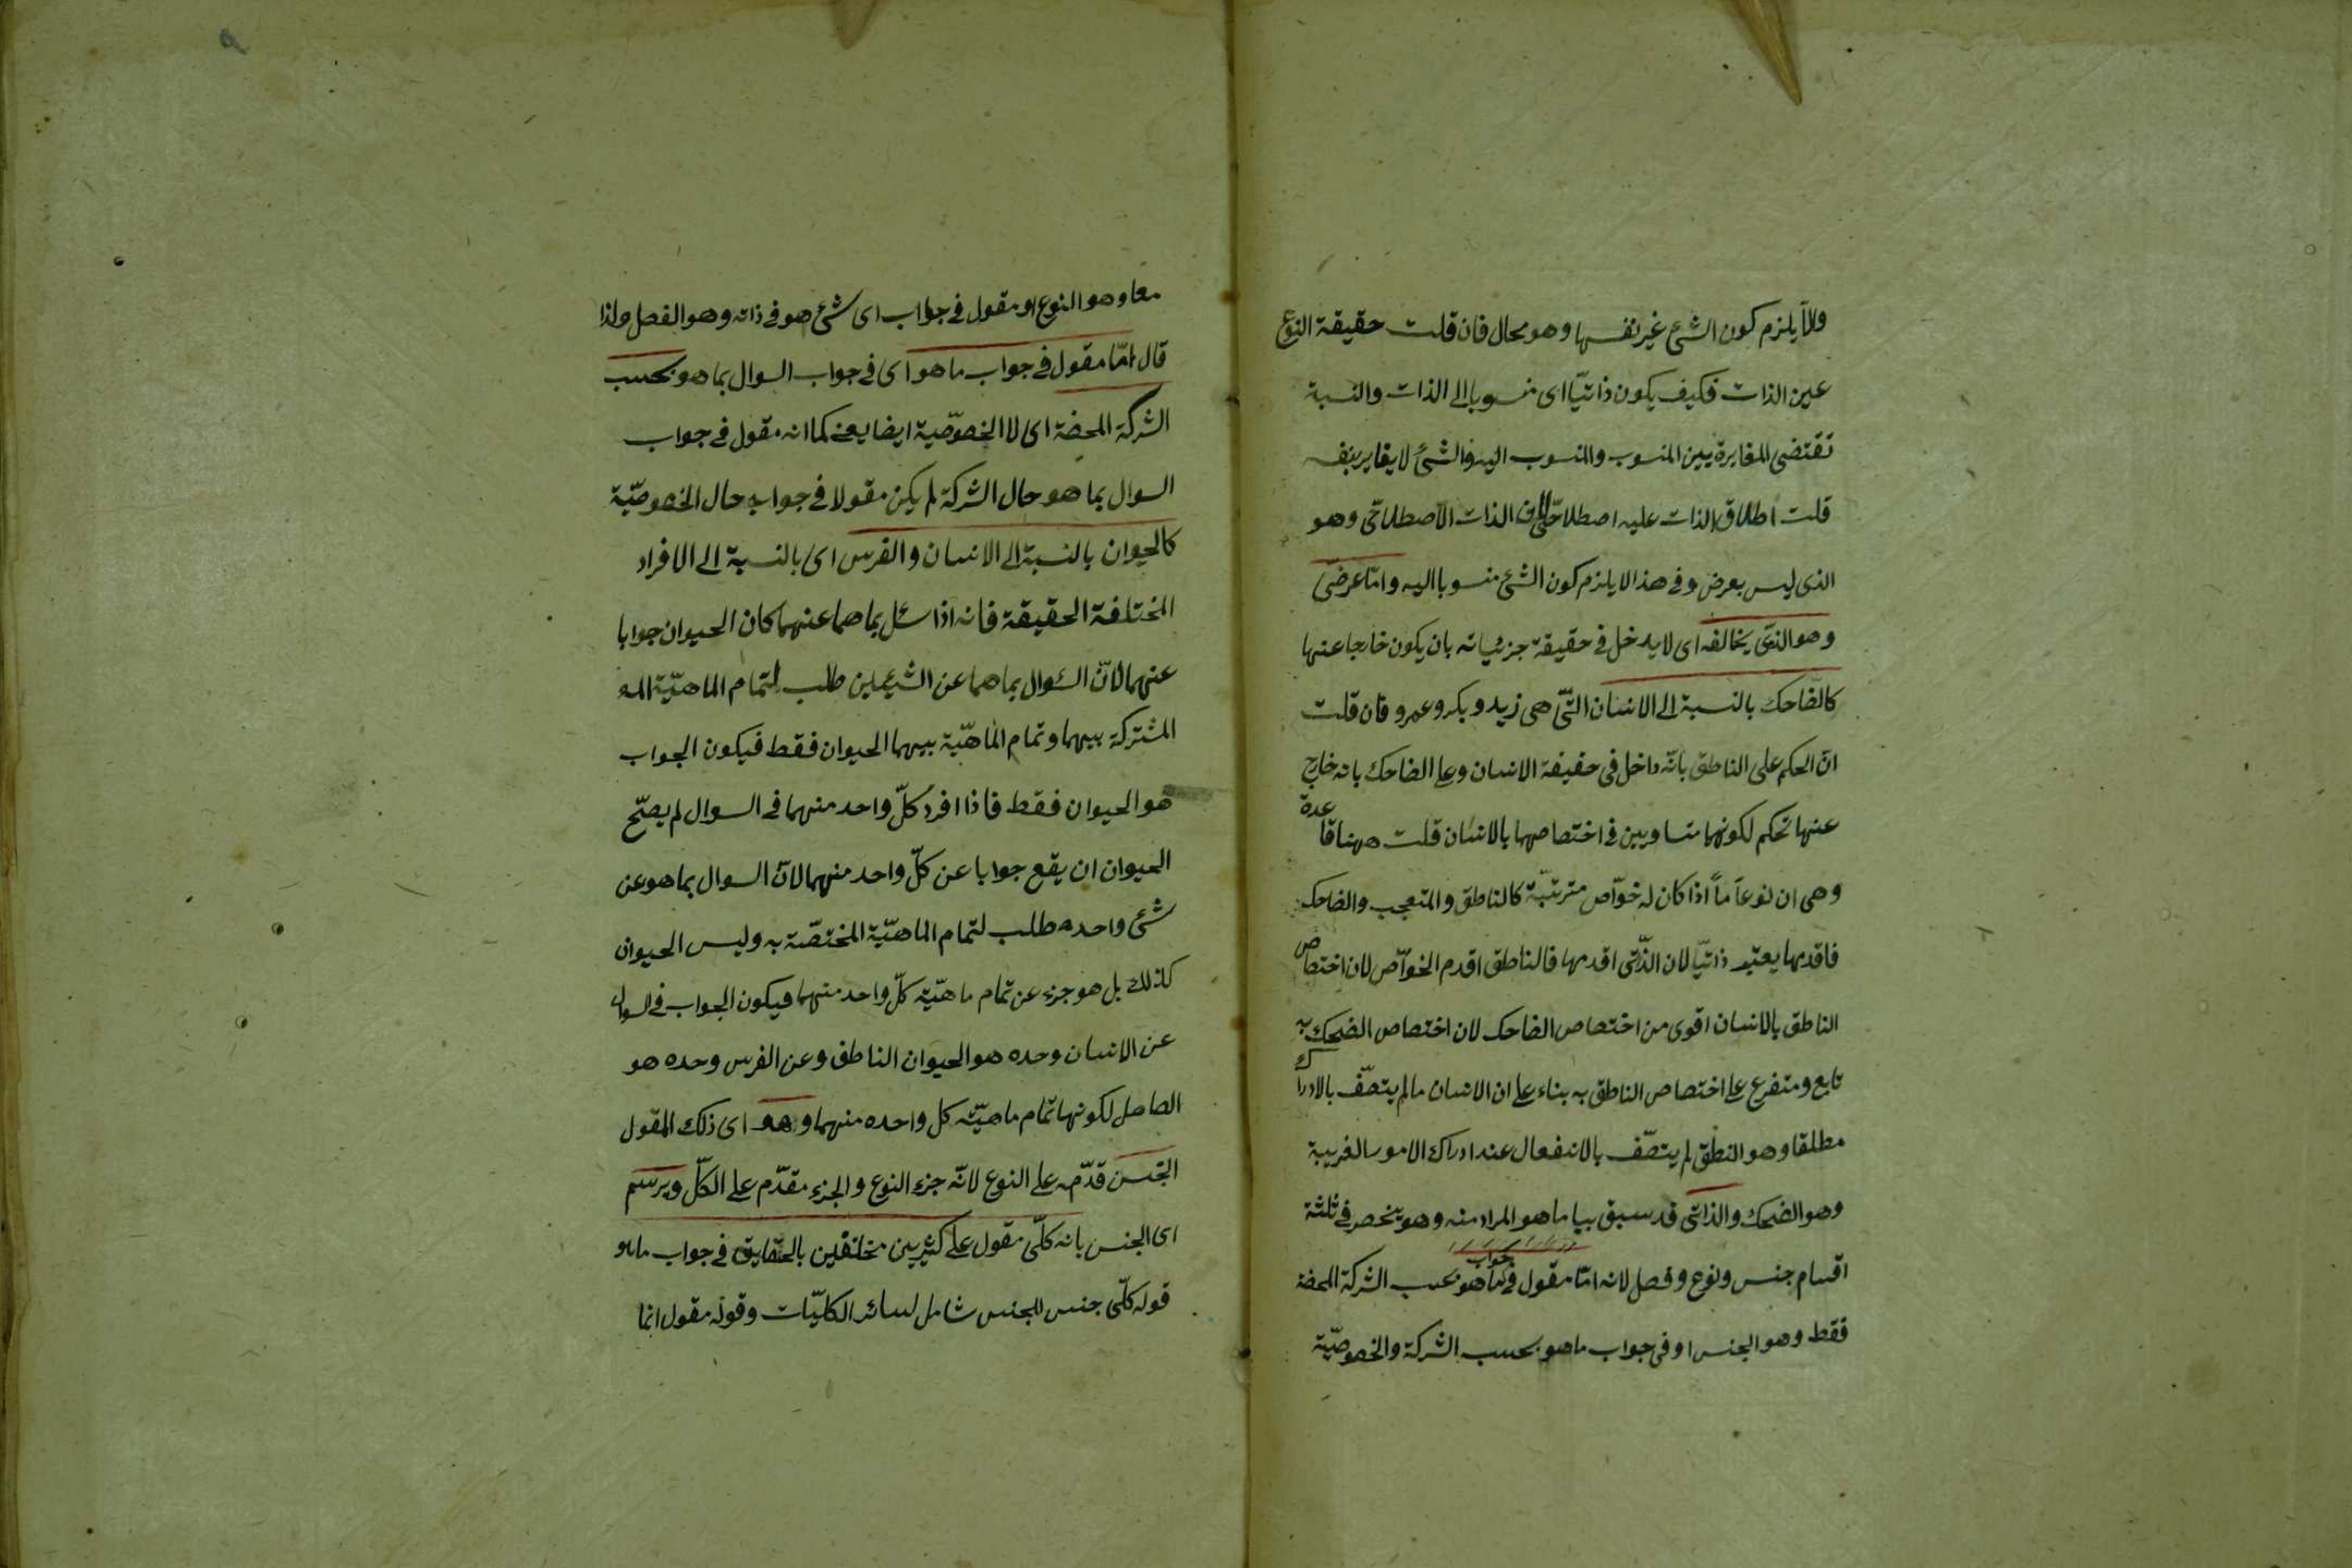 والا يلزم كون الشئ غير نفسها وهو محال فان قلت حقيقة النوع
عين الذات فكيف يكون ذاتيّا اى منسوبا الى الذات والنسبة
تقتضى المغايرة بين المنسوب والمنسوب اليه والشئ لا يغاير بنفسه
قلت اطلاق الذات عليه اصطلاحى الذات الاصطلاحى وهو
الذى ليس بعرض وفى هذا لا يلزم كون الشئ منسوبا اليه وامّا عرضى
وهو الذى يخالفه اى لا يدخل فى حقيقة جزئياته بان يكون خارجا عنها
كالضاحك بالنسبة الى الانسان التى هى زيد وبكر وعمرو فان قلت
انّ الحكم على الناطق بانّه داخل فى حقيقة الانسان وعلى الضاحك بانه خارج
عنها تحكم لكونهما متساويين فى اختصاصهما بالانسان قلت ههنا قاعدة
وهى ان نوعاً ماً اذا كان له خوّاص مترتبّة كالناطق والمتعجب والضاحك
فاقدمها يعتبر ذاتيّا لان الذّتى اقدمها فالناطق اقدم الخوّاص لان اختصاص
الناطق بالانسان اقوى من اختصاص الضاحك لان اختصاص الضحك به
تابع ومتفرع على اختصاص الناطق به بناء على ان الانسان مالم يتصّف بالادراك
مطلقا وهو النطق لم يتصّف بالانفعال عند ادراك الامور الغريبة
وهو الضحك والذاتى قد سبق بيا ما هو المراد منه وهو ينحصر فى ثلثة
اقسام جنس ونوع وفصل لانه امّا مقول فى جواب ما هو بحسب الشركة المحضة
فقط وهو الجنس او فى جواب ما هو بحسب الشركة والخصوصّية
معا وهو النوع او مقول فى جواب اى شئ هو فى ذاته وهو الفصل ولذا
قال امّا مقول فى جواب ما هو اى فى جواب السوال بما هو بحسب
الشركة المحضة اى لا الخصوصّية ايضا يعنى كما انه مقول فى جواب
السوال بما هو حال الشركة لم يكن مقولا فى جوابه حال الخصوصّية
كالحيوان بالنسبة الى الانسان والفرس اى بالنسبة الى الافراد
المختلفة الحقيقة فانه اذا سئل بما هما عنهما كان الحيوان جوابا
عنهما لانّ السّوال بما هما عن الشيئين طلب لتمام الماهيّة المـ
المشتركة بينهما وتمام الماهيّة بينهما الحيوان فقط فيكون الجواب
هو الحيوان فقط فاذا افرد كلّ واحد منهما فى السوال لم يصّح
الحيوان ان يقع جوابا عن كلّ واحد منهما لانّ السوال بما هو عن
شئ واحده طلب لتمام الماهيّة المختصّة به وليس الحيوان
كذلك بل هو جزء عن تمام ماهيّة كلّ واحد منهما فيكون الجواب فى السوال
عن الانسان وحده هو الحيوان الناطق وعن الفرس وحده هو
الصاهل لكونها تمام ماهيّة كل واحده منهما وهو اى ذلك المقول
الجنس قدّمه على النوع لانّه جزء النوع والجزء مقدّم على الكلّ ويرسم
اى الجنس بانه كلّى مقول على كثيرين مختلفين بالحقايق فى جواب ماهو
قوله كلّى جنس للجنس شامل لسائر الكليّات وقوله مقول انما